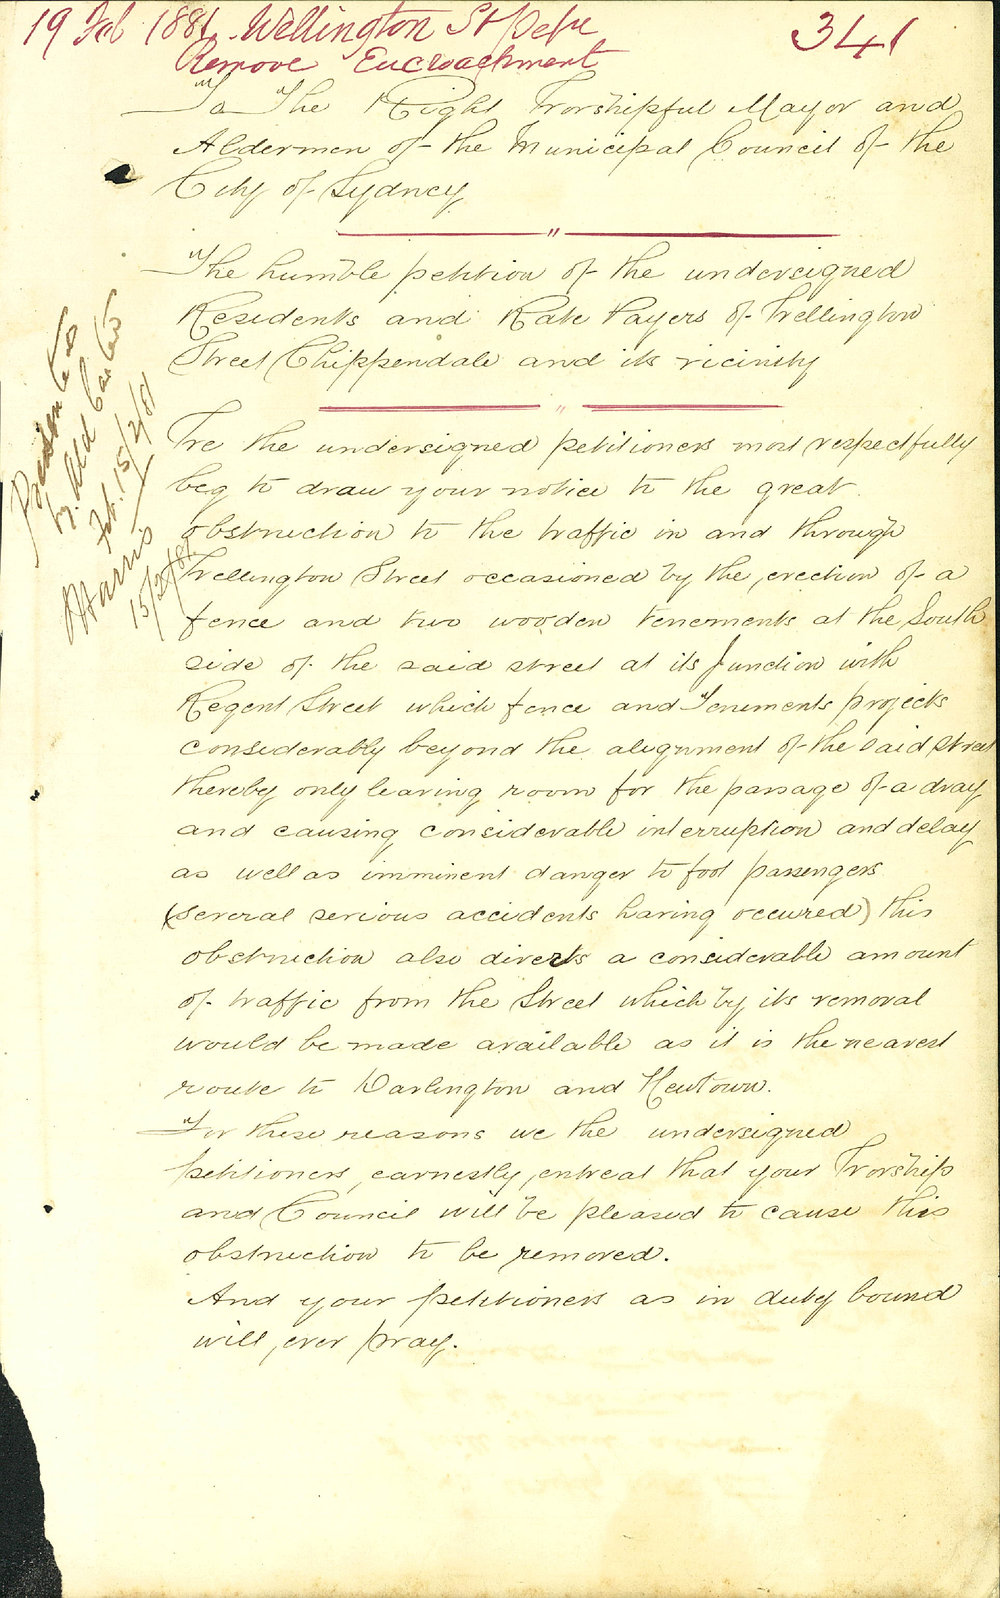 19 Feb 1881. Wellington St
341
Remove Encroachment
To The Right Worshipful Mayor and
Aldermen of the Municipal Council of the
City of Sydney
The humble petition of the undersigned
Residents and Rate Payers of Wellington
Street Chippendale and its vicinity
Presented
by Ald
Feb. 15/2/81
15/2/81
We the undersigned petitioners most respectfully
beg to draw your notice to the great
obstruction to the traffic in and through
Wellington Street occasioned by the, erection of a
fence and two wooden tenements at the South
side of the said street at its Junction with
Regent Street which fence and Tenements projects
considerably beyond the alignment of the said street
thereby only leaving room for the passage of a dray
and causing considerable interruption and delay
as well as imminent danger to foot passengers
(several serious accidents having occured) this
obstruction also diverts a considerable amount
of traffic from the Street which by its removal
would be made available as it is the nearest
route to Darlington and Newtown.
For these reasons we the undersigned
petitioners, earnestly, entreat that your Worship
and Council will be pleased to cause this
obstruction to be removed.
And your petitioners as in duty bound
will, ever pray.